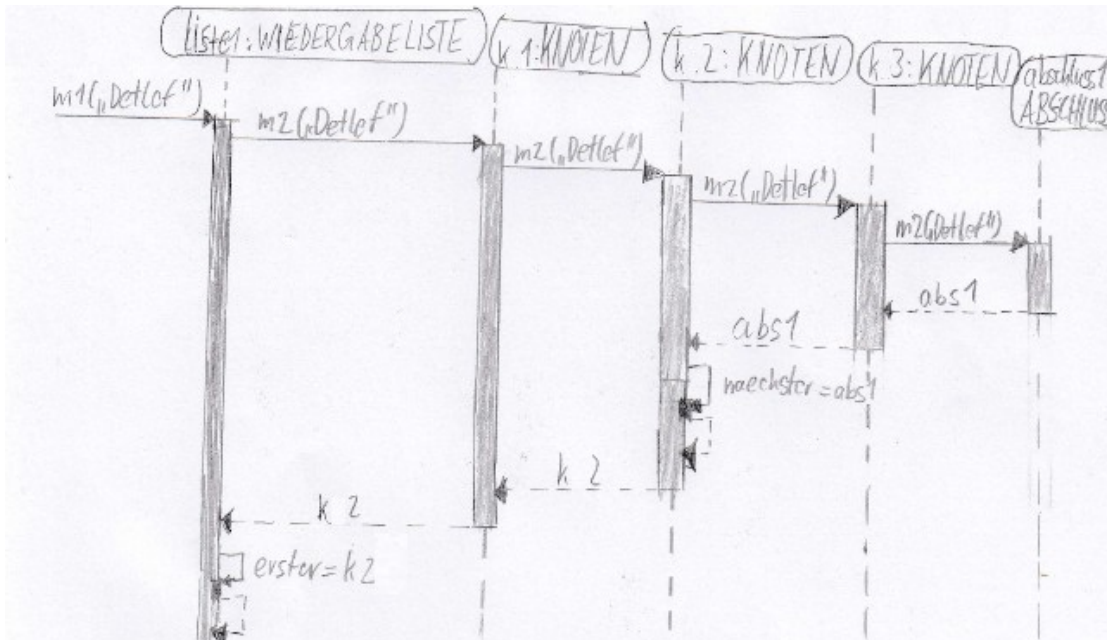 liste1: WIEDERGABELISTE
k 1: KNOTEN
k 2: KNOTEN
k 3: KNOTEN
abschluss1
ABSCHLUSS
m1(„Detlef")
m2(„Detlef")
m2(„Detlef")
m2(„Detlef")
m2(„Detlef")
abs1
abs1
naechster=abs1
k 2
k 2
erster=k2